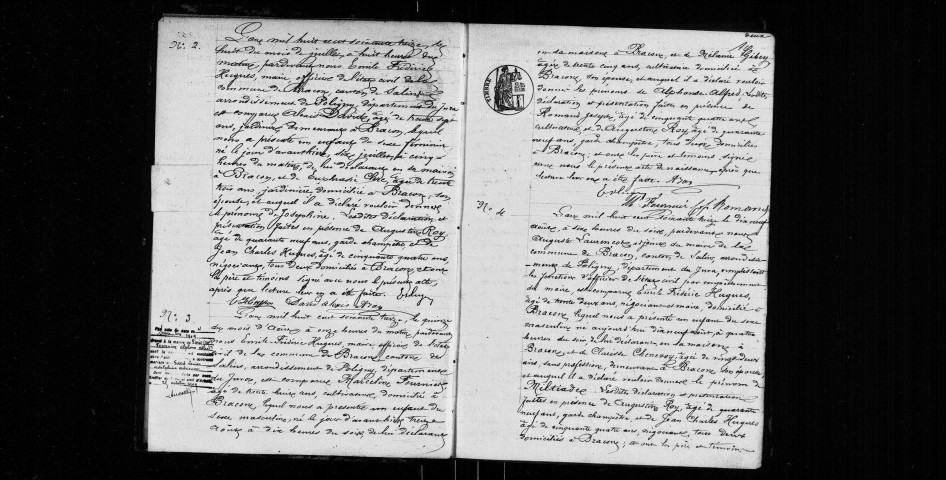 N.° 2.
L'an mil huit cent soixante treize, le
huit du mois de juillet, à huit heures du
matin, pardevant nous Emile Fréderic
Hugues, maire, officier de l'état civil de la
commune de Bracon, canton de Salins
arrondissement de Poligny, département du Jura
est comparu Alexis David, âgé de trente sept
ans, jardinier, demeurant à Bracon, lequel
nous a présenté un enfant du sexe féminin
né le jour d'avant hier, six juillet, à cinq
heures du matin, de lui déclarant en sa maison
à Bracon, et de âgée de trente
trois ans, jardinière, domiciliée à Bracon, son
épouse, et auquel il a déclaré vouloir donner
le prénom de Josephine. Lesdites déclaration et
présentation faites en présence de Augustin Roy
âgé de quarante neuf ans, garde champêtre et de
Jean Charles Hugues, âgé de cinquante quatre ans,
négociant, tous deux domiciliés à Bracon, et ont
le père et témoins signé avec nous le présent acte,
après que lecture leur en a été faite.
David alexis Roy
N.° 3
L'an mil huit cent soixante treize, le quinze
du mois d'Août à onze heures du matin, pardevant
nous Emile Fréderic Hugues, maire, officier de l'état
civil de la commune de Bracon, canton de
Salins, arrondissement de Poligny, département
du Jura, est comparu Marcelin Fournier
âgé de trente huit ans, cultivateur, domicilié à
Bracon, lequel nous a présenté un enfant du
sexe masculin, né le jour d'avant hier treize
Août à dix heures du soir, de lui déclarant
deux
en sa maison à Bracon, et de Mélanie
âgée de trente cinq ans, cultivatrice domiciliée à
Bracon, son épouse, et auquel il a déclaré vouloir
donner les prénoms de Alphonse Alfred. Lesdites
déclaration et présentation faites en présence de
Romand Joseph, âgé de cinquante quatre ans,
cultivateur et de Augustin Roy, âgé de quarante
neuf ans, garde champêtre, tous deux domiciliés
à Bracon; et ont les père et témoins signé
avec nous le présent acte de naissance, après que
lecture leur en a été faite. Roy
Fournier Romand
TIMBRE
N.° 4
L'an mil huit cent soixante treize le dix neuf
Août, à six heures du soir, pardevant nous
Auguste adjoint du maire de la
commune de Bracon, canton de Salins arrondisse-
-ment de Poligny, département du Jura, remplissant
les fonctions d'officier de l'état civil par empêchement
du maire, est comparu Emile Fréderic Hugues,
âgé de trente deux ans, négociant et maire, domicilié à
Bracon, lequel nous a présenté un enfant du sexe
masculin né aujourd'hui dix neuf août, à quatre
heures du soir de lui déclarant en sa maison à
Bracon, et de Clarisse âgée de vingt deux
ans, sans profession, demeurant à Bracon, son épouse
et auquel il a déclaré vouloir donner le prénom de
Miltiades. Lesdites déclaration et présentation
faites en présence de Augustin Roy, âgé de quarante
neuf ans, garde champêtre, et de Jean Charles Hugues
âgé de cinquante quatre ans, négociant, tous deux
domiciliés à Bracon; et ont les père et témoins